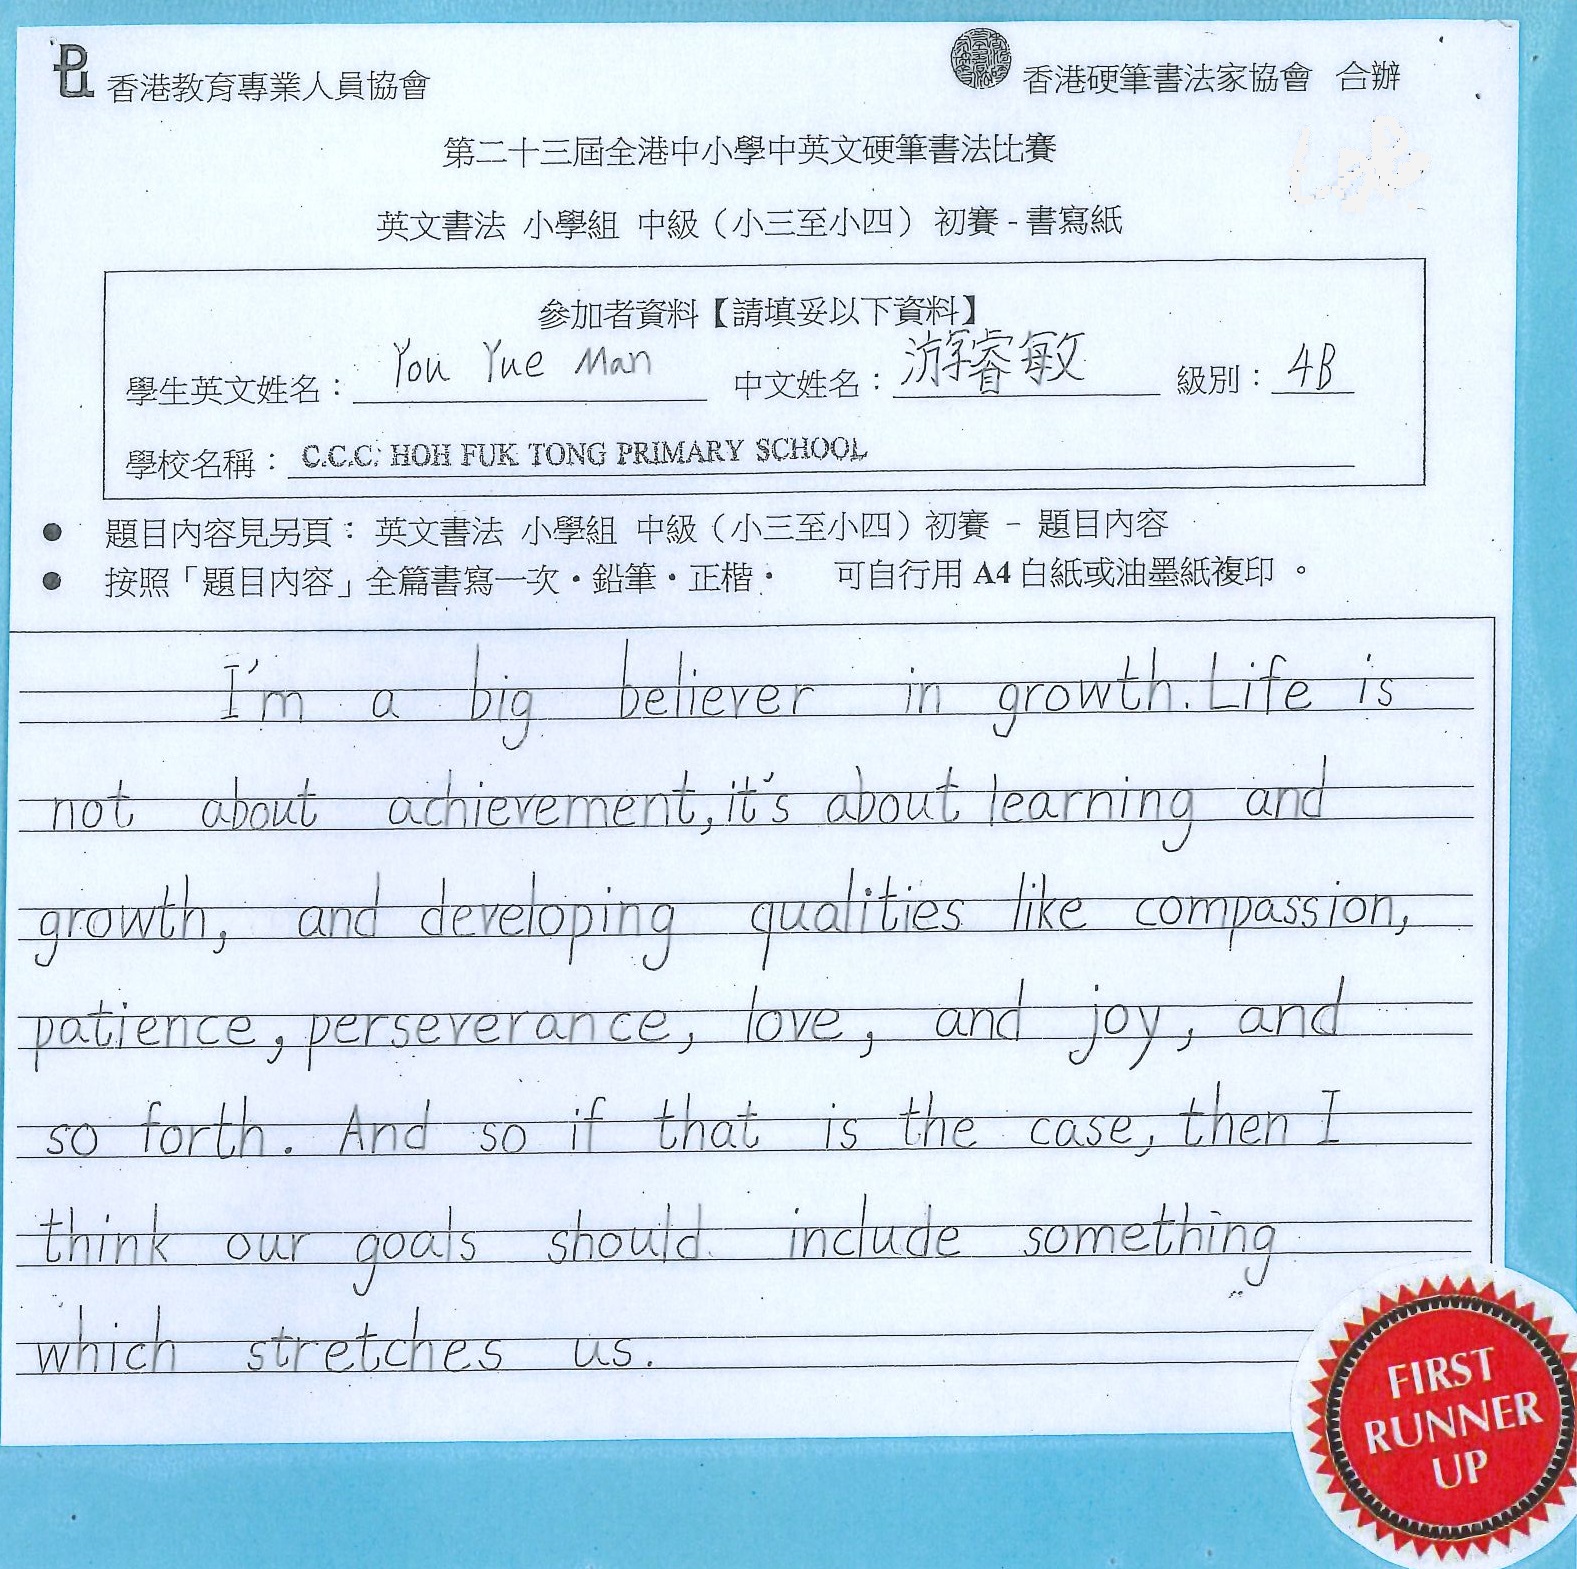 香港教育專業人員協會
香港硬筆書法家協會 合辦
第二十三屆全港中小學中英文硬筆書法比賽
英文書法 小學組 中級（小三至小四）初賽 - 書寫紙
參加者資料【請填妥以下資料】
學生英文姓名： You Yue Man 中文姓名： 游睿敏 級別： 4B
學校名稱： C.C.C. HOH FUK TONG PRIMARY SCHOOL
● 題目內容見另頁： 英文書法 小學組 中級（小三至小四）初賽 - 題目內容
● 按照「題目內容」全篇書寫一次・鉛筆・正楷・ 可自行用 A4 白紙或油墨紙複印 。
I'm a big believer in growth. Life is
not about achievement, it's about learning and
growth, and developing qualities like compassion,
patience, perseverance, love, and joy, and
so forth. And so if that is the case, then I
think our goals should include something
which stretches us.
FIRST
RUNNER
UP